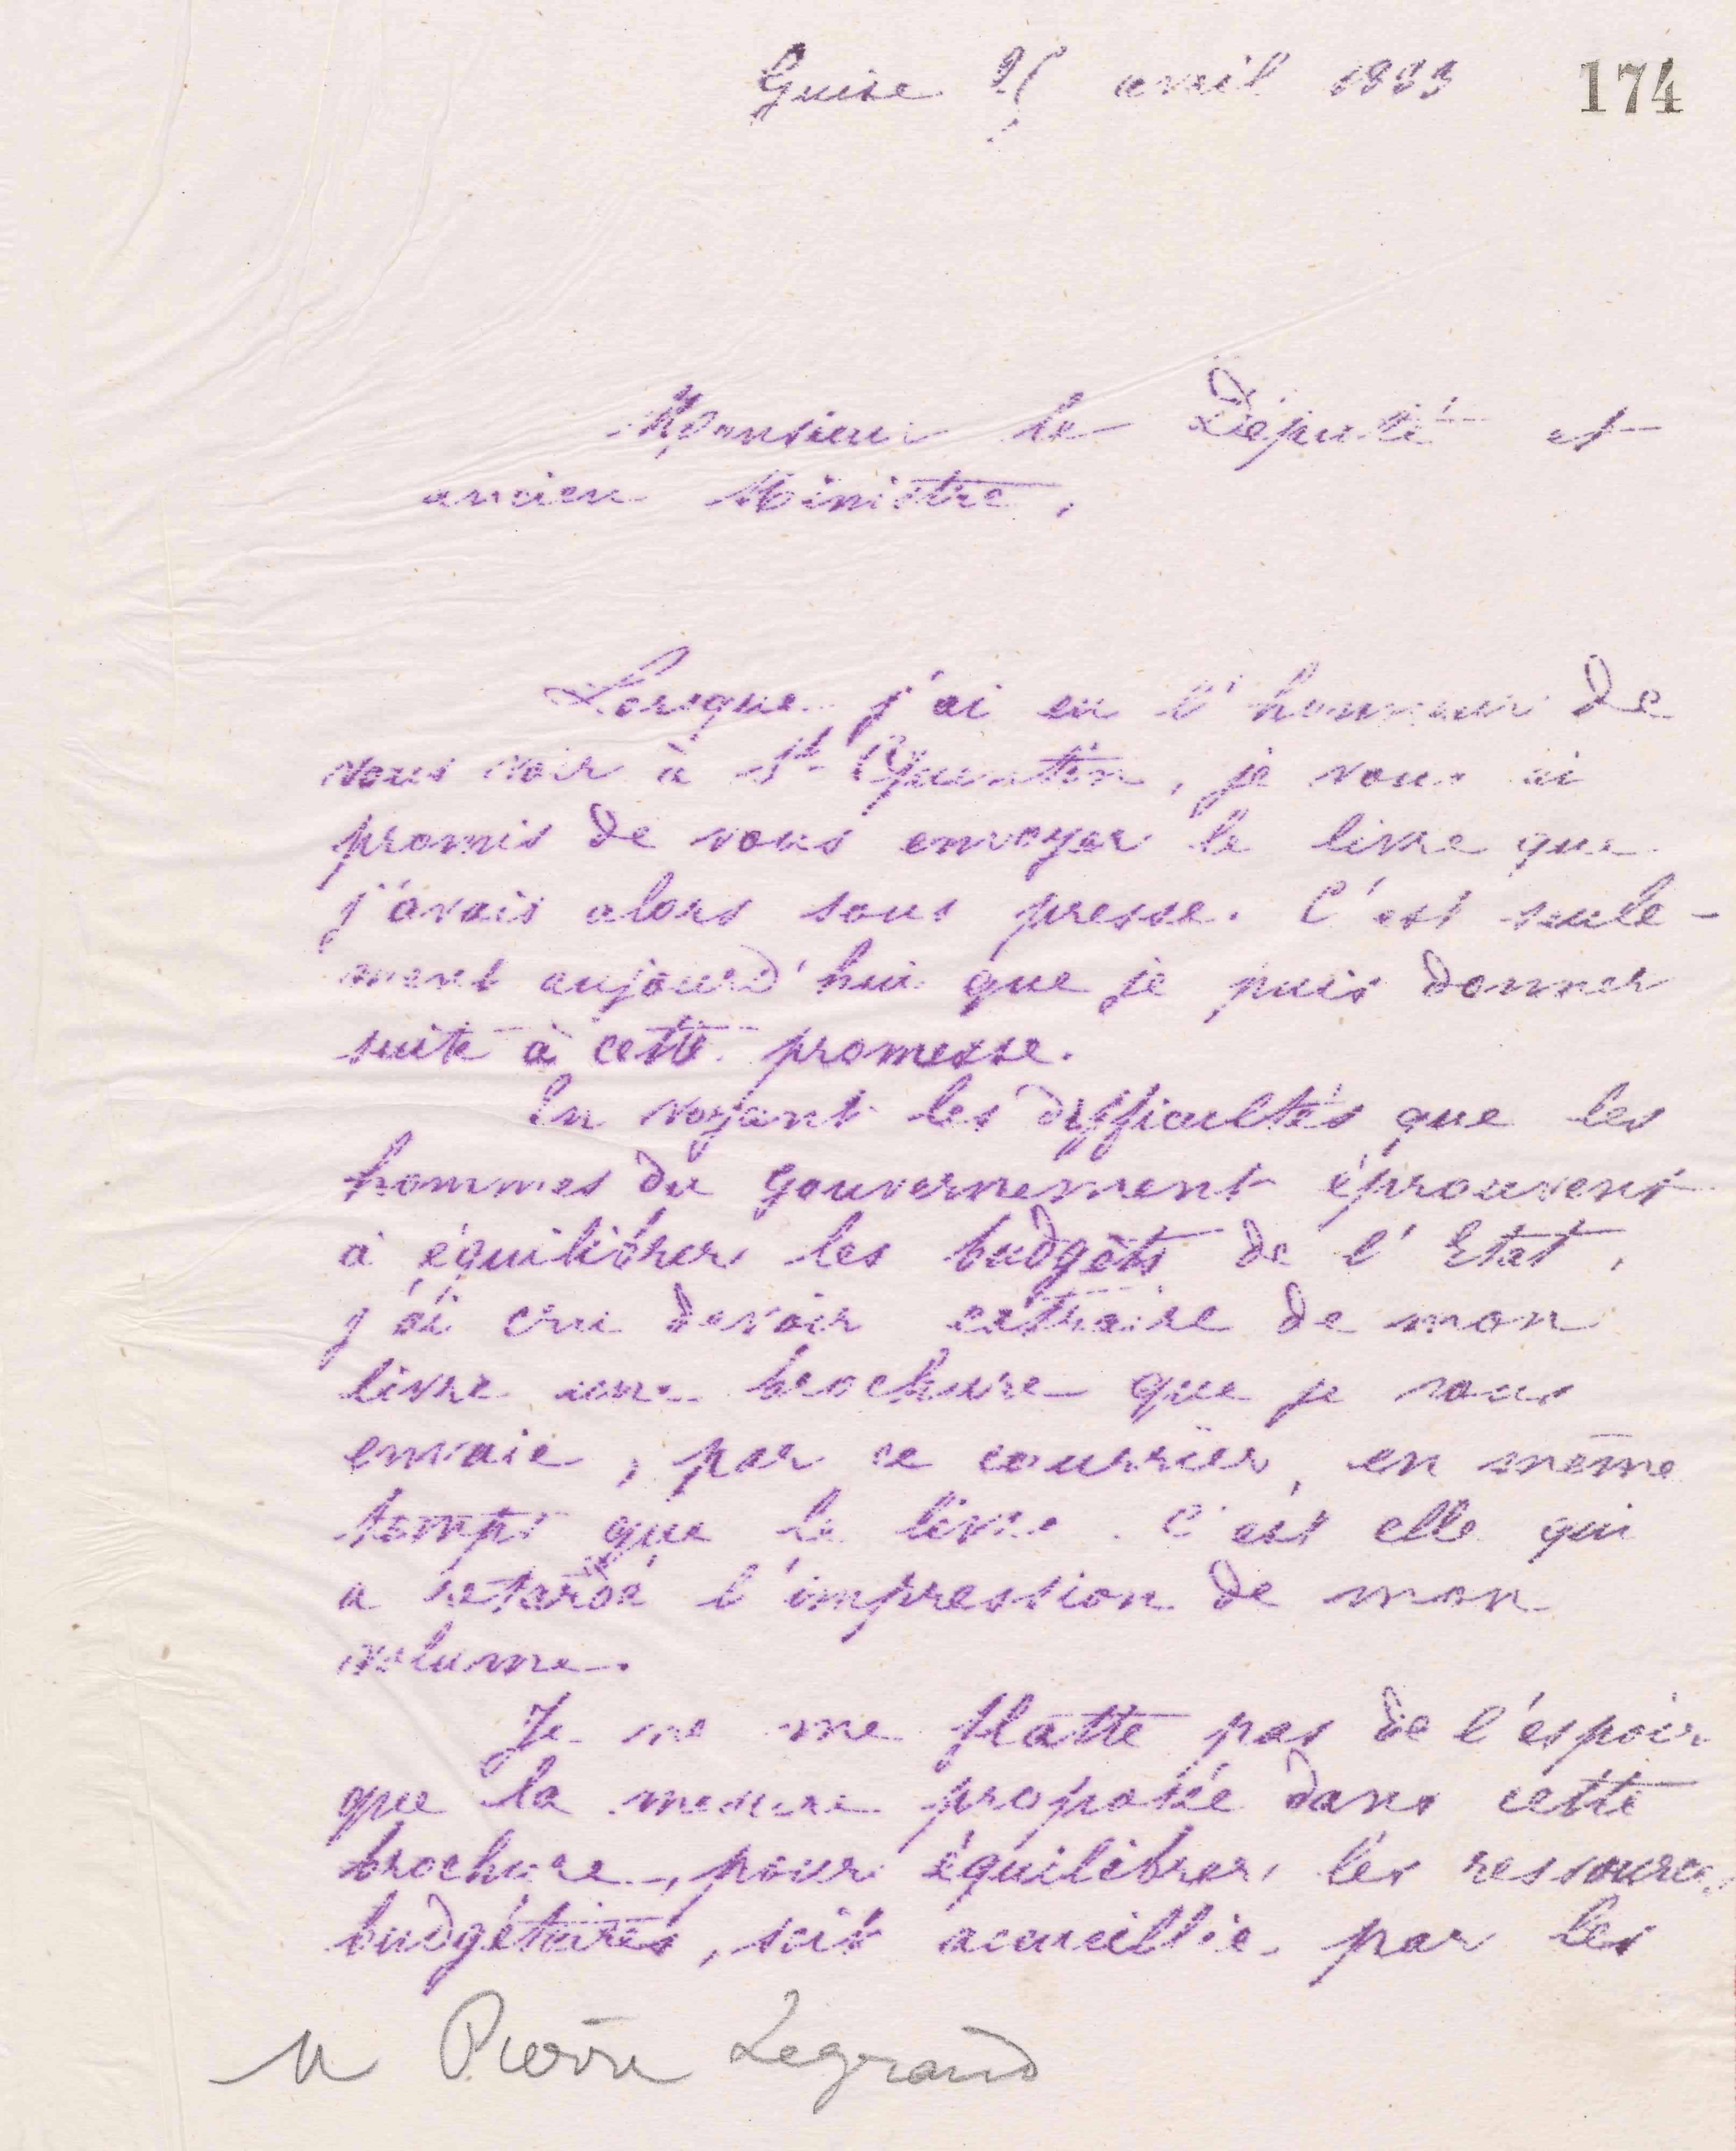 Guise 25 avril 1883 174
Monsieur le Député et
ancien Ministre,
Lorsque j'ai eu l'honneur de
vous voir à St Quentin, je vous ai
promis de vous envoyer le livre que
j'avais alors sous presse. C'est seule-
ment aujourd'hui que je puis donner
suite à cette promesse.
En voyant les difficultés que les
hommes du gouvernement éprouvent
à équilibrer les budgets de l'Etat,
j'ai cru devoir extraire de mon
livre une brochure que je vous
envoie, par ce courrier, en même
temps que le livre. C'est elle qui
a retardé l'impression de mon
volume.
Je ne me flatte pas de l'espoir
que la mesure proposée dans cette
brochure, pour équilibrer les ressources
budgétaires, soit accueillie par les
M Pierre Legrand